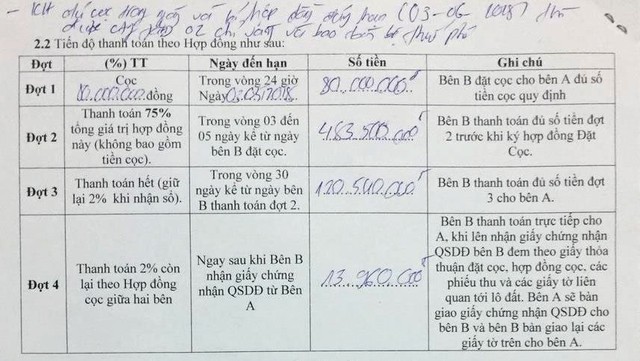 - KH
(03-06-2018) thì
được 02 chỉ vàng và bao toàn bộ thuế phí
2.2 Tiến độ thanh toán theo Hợp đồng như sau:
Đợt (%) TT Ngày đến hạn Số tiền Ghi chú
Đợt 1
Cọc
80.000.000 đồng
Trong vòng 24 giờ
Ngày
80.000.000đ
Bên B đặt cọc cho bên A đủ số
tiền cọc quy định
Đợt 2
Thanh toán 75%
tổng giá trị hợp đồng
này (không bao gồm
tiền cọc).
Trong vòng 03 đến
05 ngày kể từ ngày
bên B đặt cọc.
483.500.000đ
Bên B thanh toán đủ số tiền đợt
2 trước khi ký hợp đồng Đặt
Cọc.
Đợt 3
Thanh toán hết (giữ
lại 2% khi nhận sổ).
Trong vòng 30
ngày kể từ ngày bên
B thanh toán đợt 2.
120.540.000đ
Bên B thanh toán đủ số tiền đợt
3 cho bên A.
Đợt 4
Thanh toán 2% còn
lại theo Hợp đồng
cọc giữa hai bên
Ngay sau khi Bên B
nhận giấy chứng
nhận QSDĐ từ Bên
A
13.960.000đ
Bên B thanh toán trực tiếp cho
A, khi lên nhận giấy chứng nhận
QSDĐ bên B đem theo giấy thỏa
thuận đặt cọc, hợp đồng cọc, các
phiếu thu và các giấy tờ liên
quan tới lô đất. Bên A sẽ bàn
giao giấy chứng nhận QSDĐ cho
bên B và bên B bàn giao lại các
giấy tờ trên cho bên A.